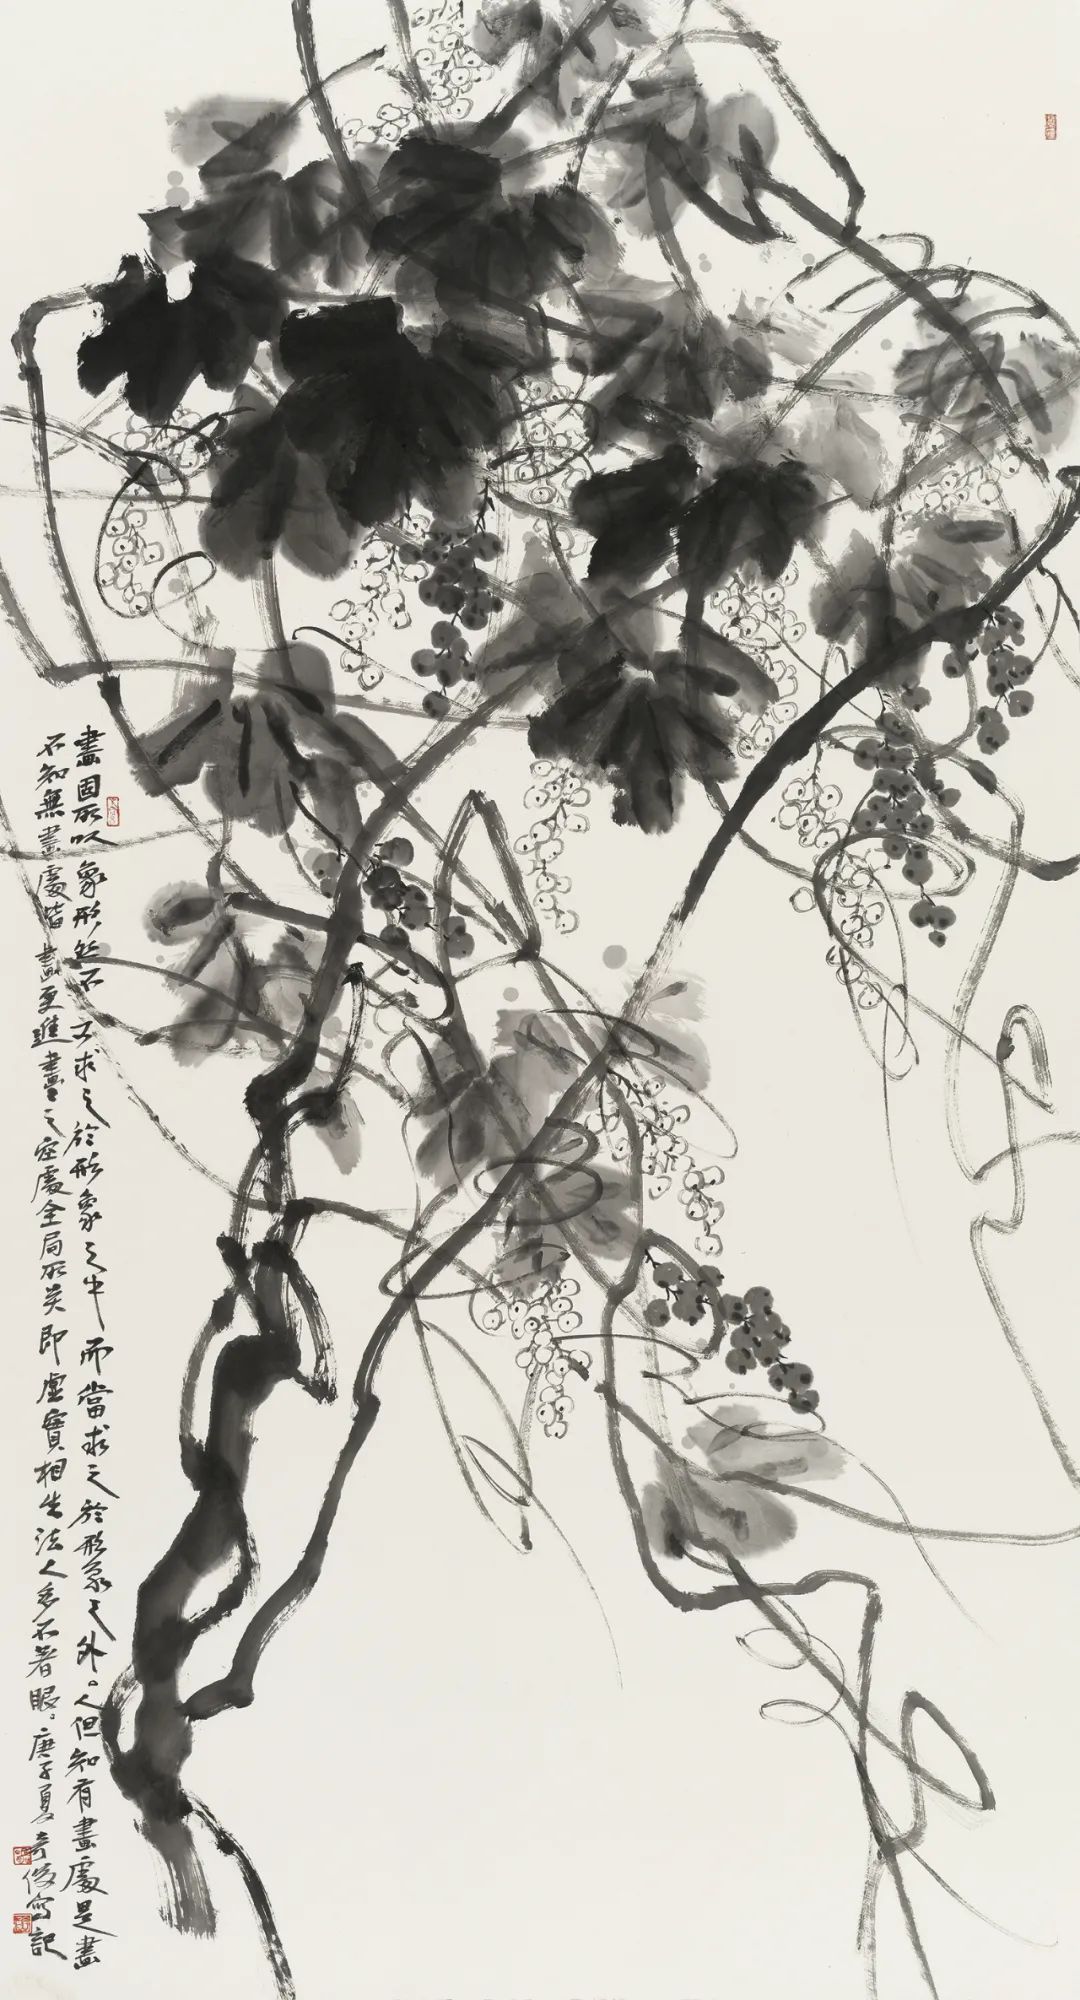 畫固所以象形然不可求之於形象之中而當求之於形象之外。人但知有畫處是畫
不知無畫處皆畫更進畫之空處全局所关即虛實相生法人多不著眼。庚子夏奇俊寫記